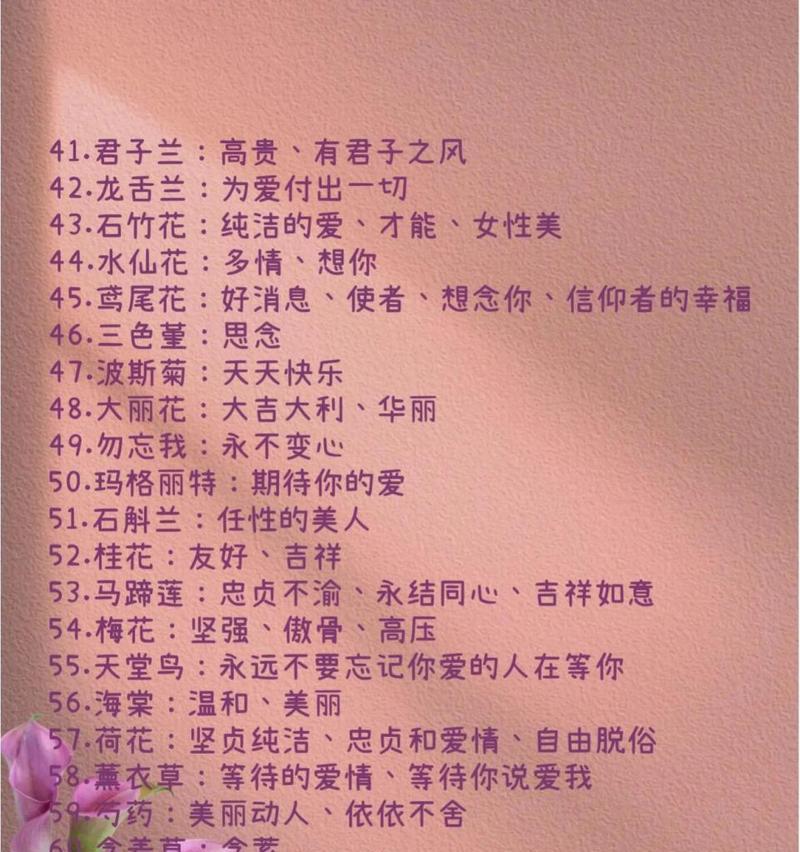 41.君子兰：高贵、有君子之风
42.龙舌兰：为爱付出一切
43.石竹花：纯洁的爱、才能、女性美
44.水仙花：多情、想你
45.鸢尾花：好消息、使者、想念你、信仰者的幸福
46.三色堇：思念
47.波斯菊：天天快乐
48.大丽花：大吉大利、华丽
49.勿忘我：永不变心
50.玛格丽特：期待你的爱
51.石斛兰：任性的美人
52.桂花：友好、吉祥
53.马蹄莲：忠贞不渝、永结同心、吉祥如意
54.梅花：坚强、傲骨、高压
55.天堂鸟：永远不要忘记你爱的人在等你
56.海棠：温和、美丽
57.荷花：坚贞纯洁、忠贞和爱情、自由脱俗
58.薰衣草：等待的爱情、等待你说爱我
59.芍药：美丽动人、依依不舍
60.含羞草：含蓄